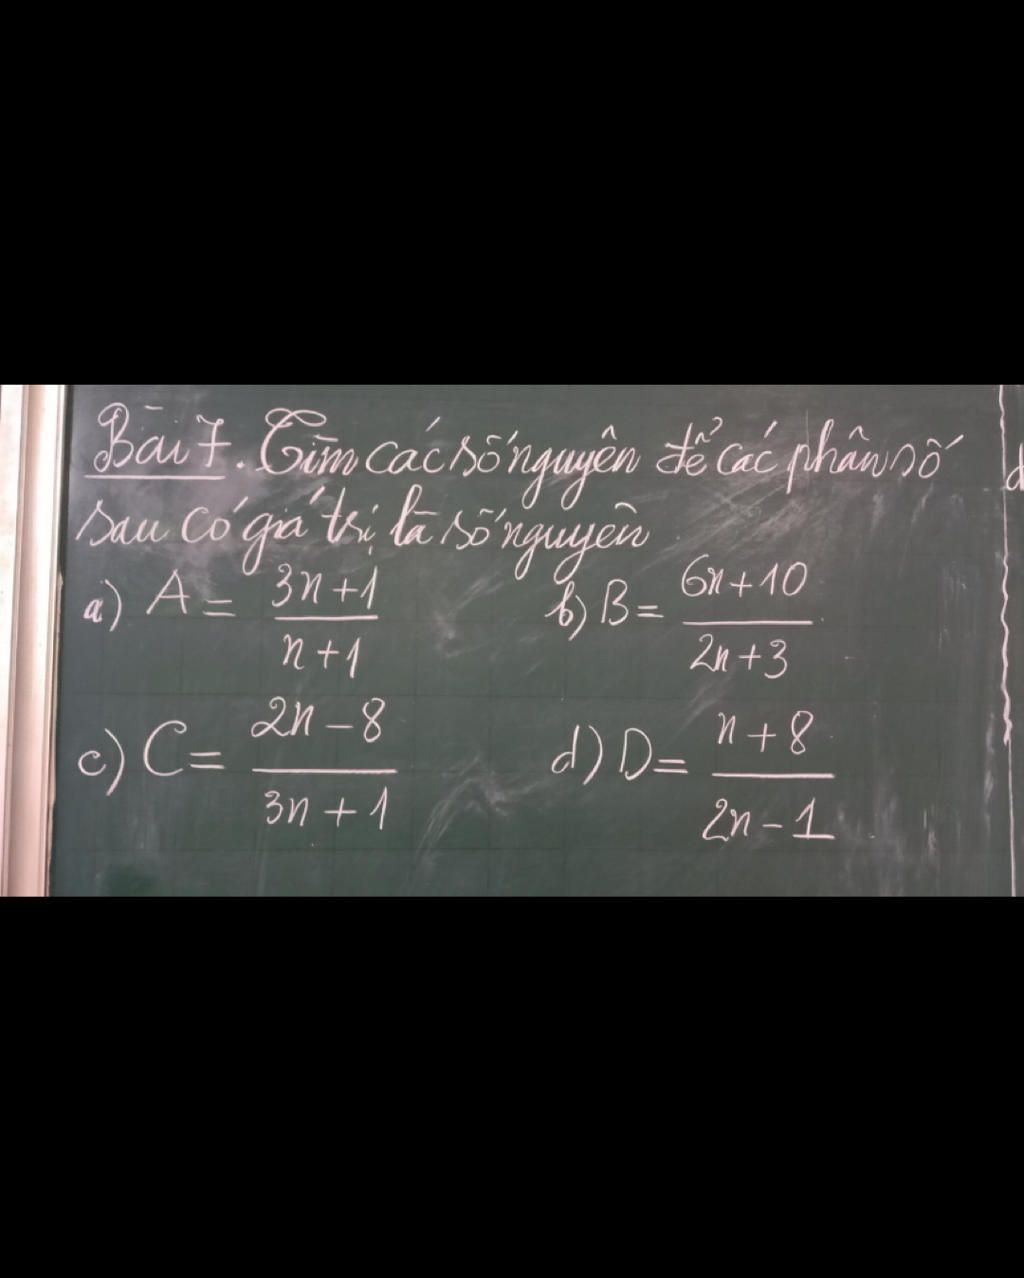 Bài 7. Tìm các số nguyên để các phân số
sau có giá trị là số nguyên
a) A = 3n+1 / n+1 b) B = 6n+10 / 2n+3
c) C = 2n-8 / 3n+1 d) D = n+8 / 2n-1